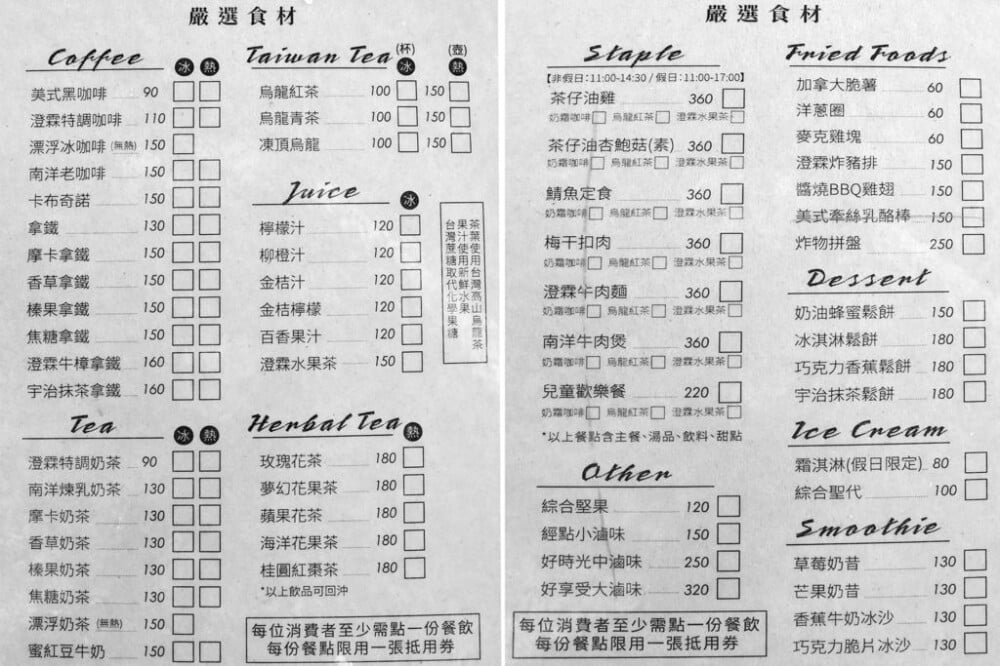 嚴選食材
Coffee 冰 熱
美式黑咖啡 90
澄霖特調咖啡 110
漂浮冰咖啡 (無熱) 150
南洋老咖啡 150
卡布奇諾 150
拿鐵 130
摩卡拿鐵 150
香草拿鐵 150
榛果拿鐵 150
焦糖拿鐵 150
澄霖牛樟拿鐵 160
宇治抹茶拿鐵 160
Tea 冰 熱
澄霖特調奶茶 90
南洋煉乳奶茶 130
摩卡奶茶 130
香草奶茶 130
榛果奶茶 130
焦糖奶茶 130
漂浮奶茶 (無熱) 150
蜜紅豆牛奶 150
Taiwan Tea (杯) 冰 (壺) 熱
烏龍紅茶 100 150
烏龍青茶 100 150
凍頂烏龍 100 150
Juice 冰
檸檬汁 120
柳橙汁 120
金桔汁 120
金桔檸檬 120
百香果汁 120
澄霖水果茶 150
茶葉使用台灣高山烏龍茶
果汁使用新鮮水果
台灣蔗糖取代化學果糖
Herbal Tea 熱
玫瑰花茶 180
夢幻花果茶 180
蘋果花茶 180
海洋花果茶 180
桂圓紅棗茶 180
*以上飲品可回沖
每位消費者至少需點一份餐飲
每份餐點限用一張抵用券
嚴選食材
Staple
【非假日:11:00-14:30 / 假日:11:00-17:00】
茶仔油雞 360
奶霜咖啡 烏龍紅茶 澄霖水果茶
茶仔油杏鮑菇(素) 360
奶霜咖啡 烏龍紅茶 澄霖水果茶
鯖魚定食 360
奶霜咖啡 烏龍紅茶 澄霖水果茶
梅干扣肉 360
奶霜咖啡 烏龍紅茶 澄霖水果茶
澄霖牛肉麵 360
奶霜咖啡 烏龍紅茶 澄霖水果茶
南洋牛肉煲 360
奶霜咖啡 烏龍紅茶 澄霖水果茶
兒童歡樂餐 220
奶霜咖啡 烏龍紅茶 澄霖水果茶
*以上餐點含主餐、湯品、飲料、甜點
Other
綜合堅果 120
經點小滷味 150
好時光中滷味 250
好享受大滷味 320
每位消費者至少需點一份餐飲
每份餐點限用一張抵用券
Fried Foods
加拿大脆薯 60
洋蔥圈 60
麥克雞塊 60
澄霖炸豬排 150
醬燒BBQ雞翅 150
美式牽絲乳酪棒 150
炸物拼盤 250
Dessert
奶油蜂蜜鬆餅 150
冰淇淋鬆餅 180
巧克力香蕉鬆餅 180
宇治抹茶鬆餅 180
Ice Cream
霜淇淋(假日限定) 80
綜合聖代 100
Smoothie
草莓奶昔 130
芒果奶昔 130
香蕉牛奶冰沙 130
巧克力脆片冰沙 130